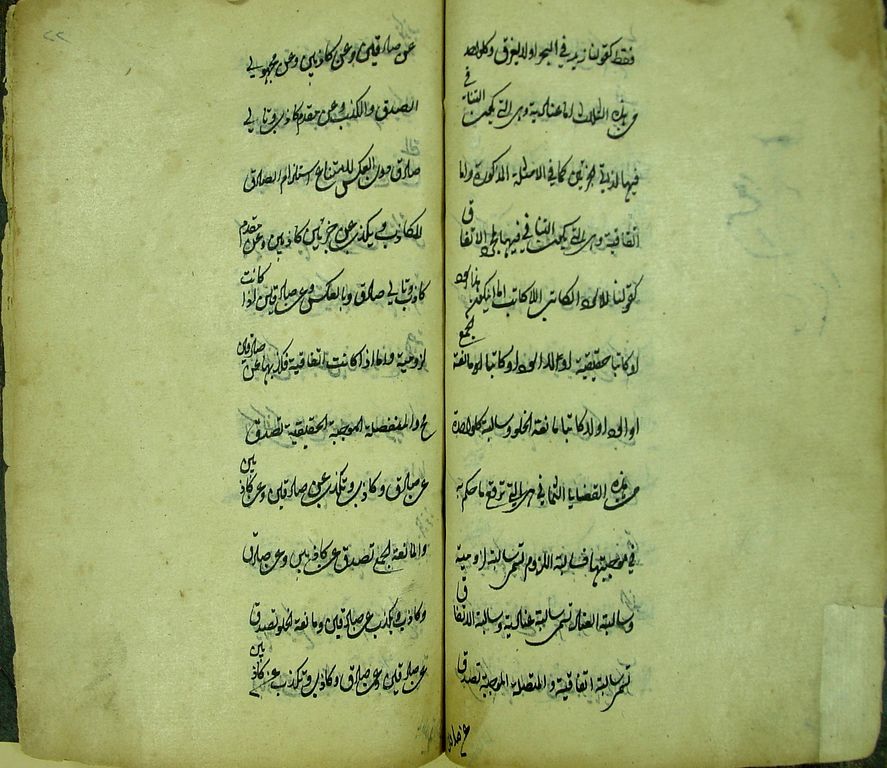 فقط كقولنا زيد في البحر او لا يغرق وكل واحدة
من هذه الثلاث اما عنادية وهي التي يكون التنافي
فيها لذاتي الجزئين كما في الامثلة المذكورة واما
اتفاقية وهي التي يكون التنافي فيها بمجرد الاتفاق
كقولنا للاسود اللاكاتب اما ان يكون هذا اسود
او كاتبا حقيقية او لا اسود او كاتبا مانعة الجمع
او اسود او لا كاتبا مانعة الخلو وسالبة كل واحدة
من هذه القضايا الثماني هي التي ترفع ما حكم به
في موجبتها فسالبة اللزوم تسمى سالبة لزومية
وسالبة العناد تسمى سالبة عنادية وسالبة الاتفاق
تسمى سالبة اتفاقية والمتصلة الموجبة تصدق
عن صادقين
عن صادقين وعن كاذبين وعن مجهولي
الصدق والكذب وعن مقدم كاذب وتالي
صادق دون العكس لامتناع استلزام الصادق
للكاذب ويكذب عن جزئين كاذبين وعن مقدم
كاذب وتالي صادق وبالعكس وعن صادقين اذا كانت
لزومية واما اذا كانت اتفاقية فكذبها عن صادقين
مح والمنفصلة الموجبة الحقيقية تصدق
عن صادق وكاذب وتكذب عن صادقين وعن كاذبين
والمانعة الجمع تصدق عن كاذبين وعن صادق
وكاذب ويكذب عن صادقين ومانعة الخلو تصدق
عن صادقين وعن صادق وكاذب وتكذب عن كاذبين